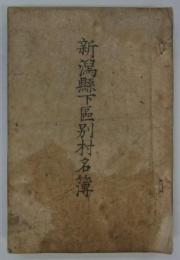 新潟縣下區別村名簿